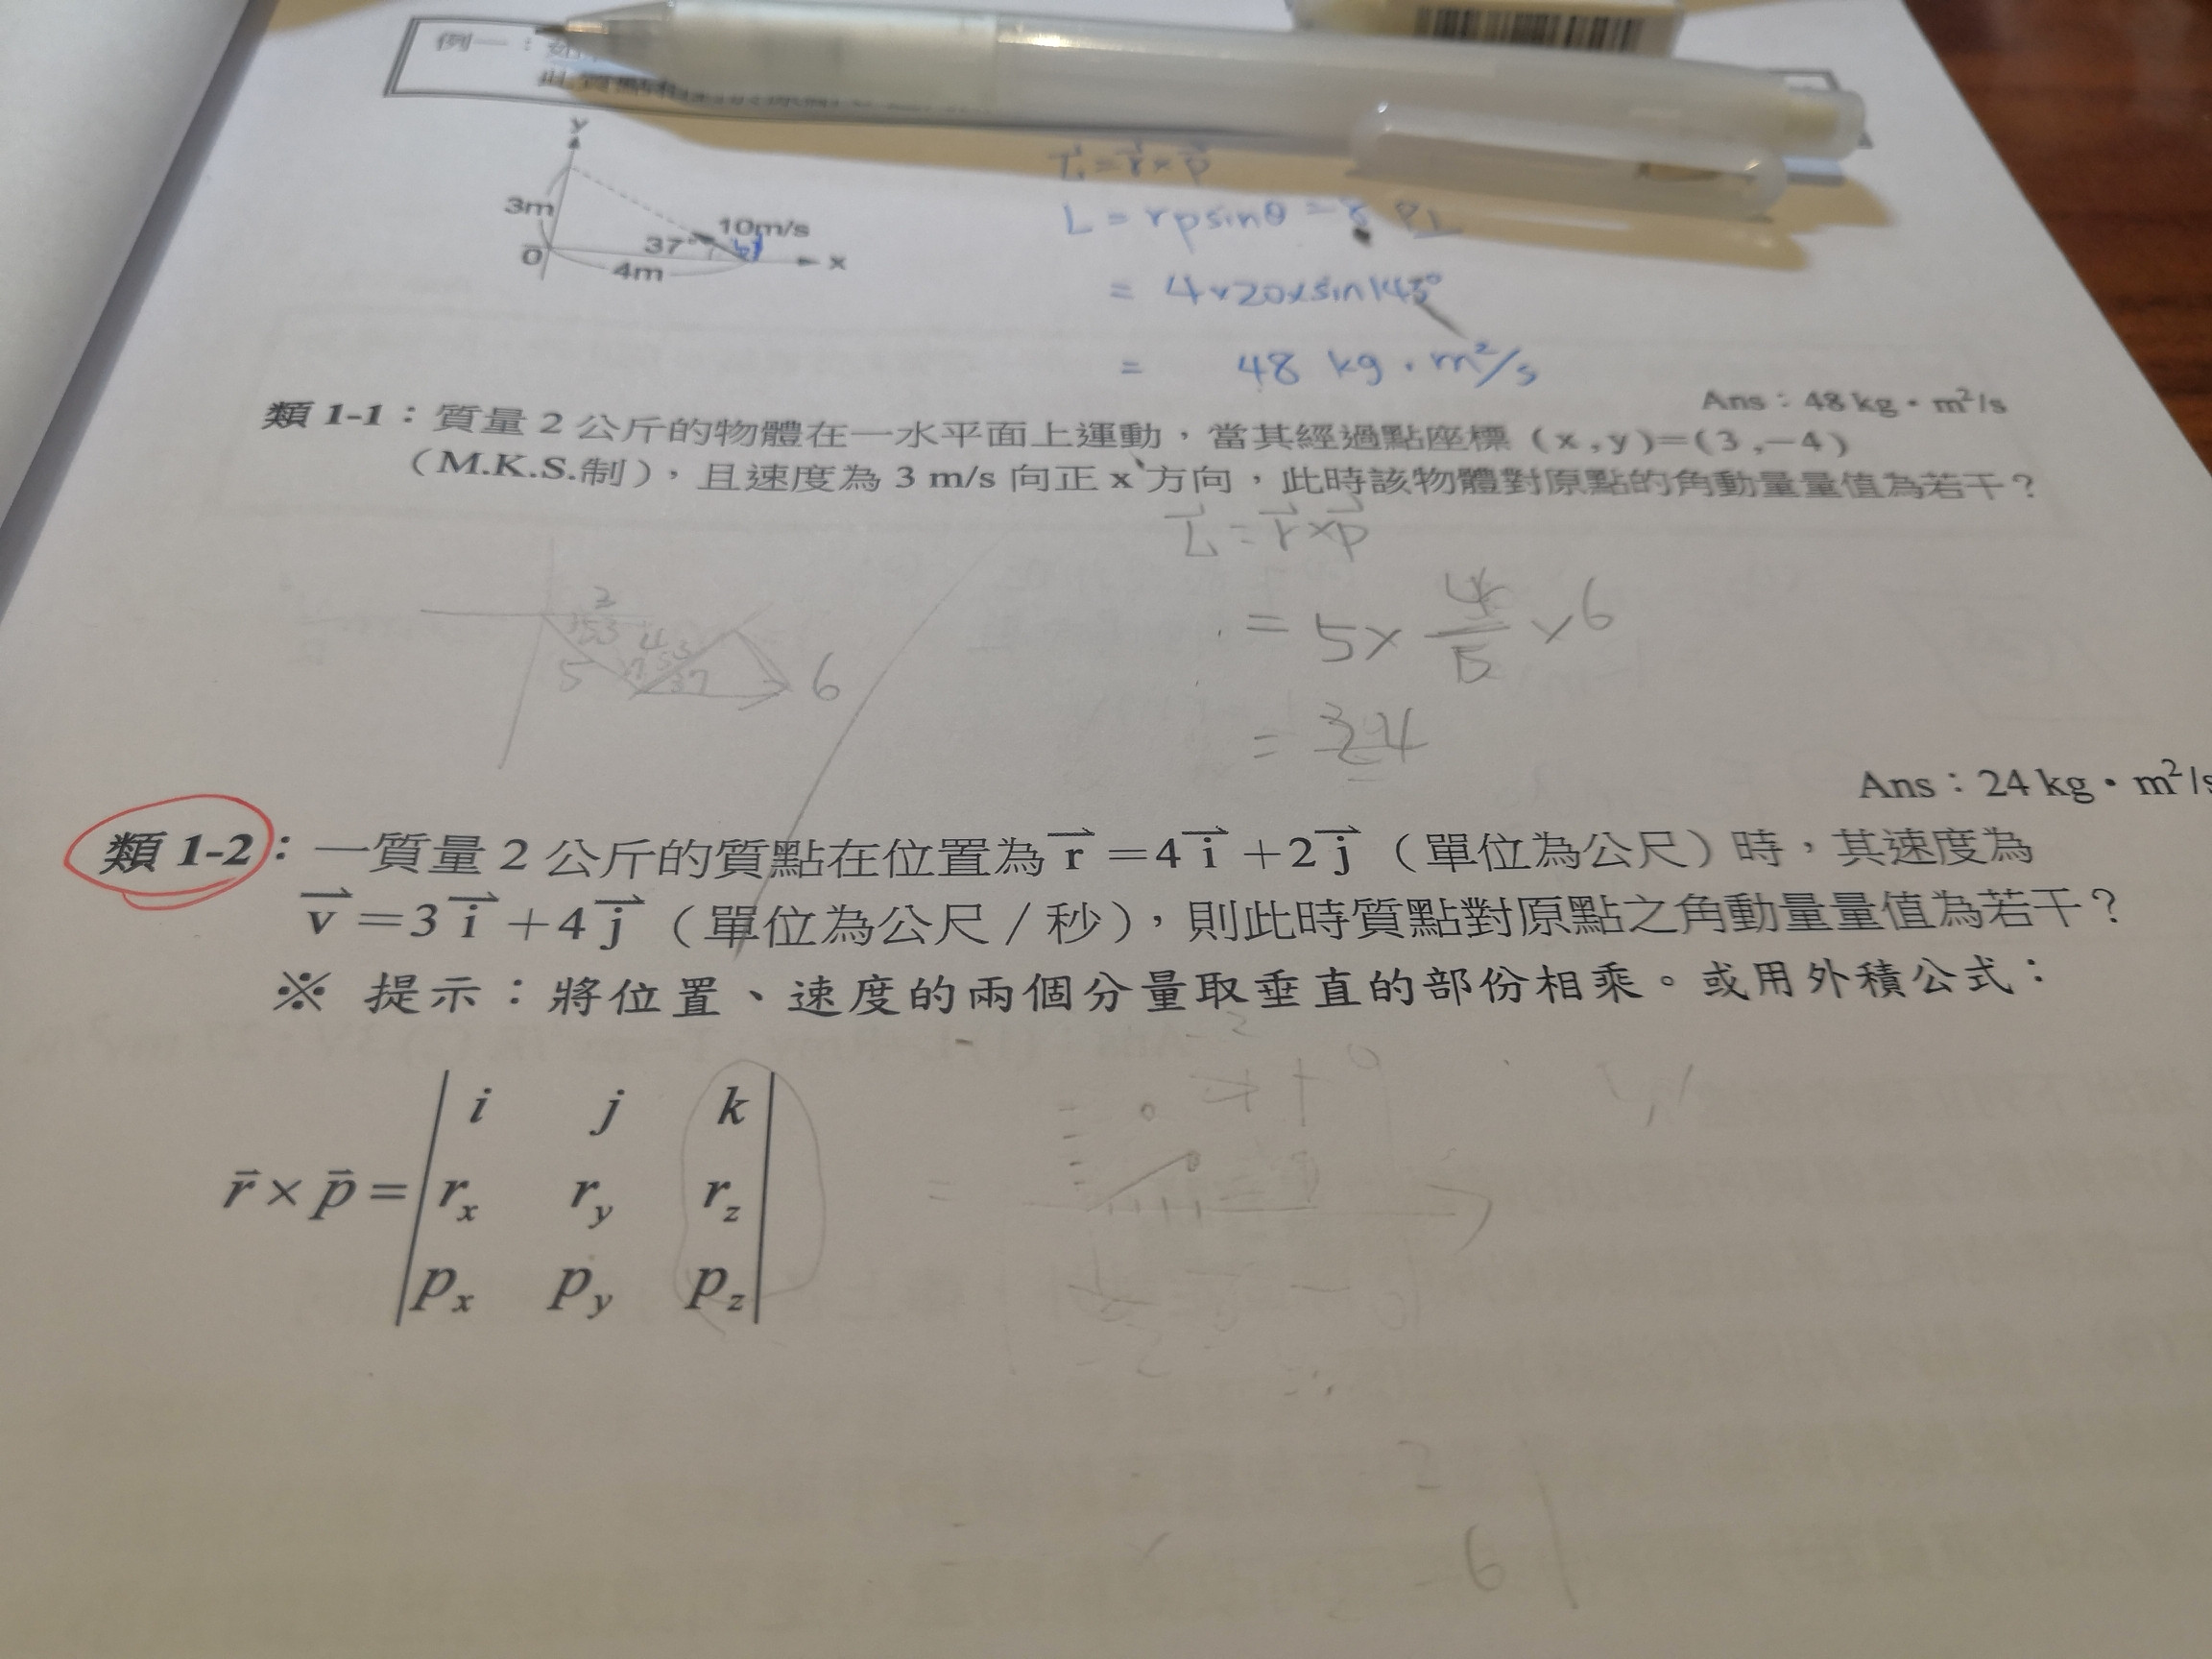 例一：
y
3m
10m/s
37°
O
4m
x
L = r × p
L = rpsinθ =
= 4×20×sin143°
= 48 kg．m²/s
Ans：48 kg．m²/s
類 1-1：質量 2 公斤的物體在一水平面上運動，當其經過點座標（x , y）=(3 ,−4)
（M.K.S.制），且速度為 3 m/s 向正 x 方向，此時該物體對原點的角動量量值為若干？
L = r×p
= 5× 4/5 ×6
= 24
5
6
37
Ans：24 kg．m²/s
類 1-2：一質量 2 公斤的質點在位置為 r⃗ =4 i⃗ +2 j⃗（單位為公尺）時，其速度為
v⃗ =3 i⃗ +4 j⃗（單位為公尺 / 秒），則此時質點對原點之角動量量值為若干？
※ 提示：將位置、速度的兩個分量取垂直的部份相乘。或用外積公式：
i j k
r⃗ × p⃗ = r_x r_y r_z
p_x p_y p_z